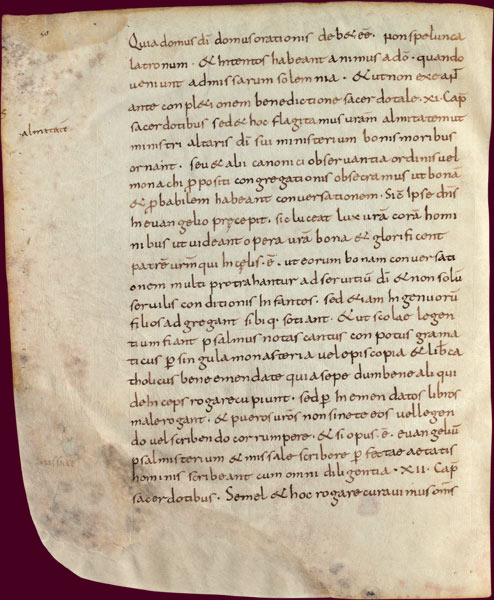 50
Quia domus dī domus orationis deb& eē · non spelunca
latronum · & intentos habeant animus ad dō · quando
veniunt ad missarum solemnia · & ut non exeant
ante conpl&ionem benedictione sacerdotale · XI · Cap̄
almitatē
sacerdotibus sed & hoc flagitamus uram almitatem ut
ministri altaris dī sui ministerium bonis moribus
ornant · seu & alii canonici observantia ordinis vel
monachi p̱positi congregationis obsecramus ut bona
& p̱babilem habeant conversationem · Sic̄ Ipse dn̄s
In evangelio pręcepit · sic luceat lux urā corā homi
nibus ut videant opera urā bona & glorificent
patrē urm̄ qui In cęlis · ē · ut eorum bonam conversati
onem multi protrahantur ad servitiū dī & non solū
servilis conditionis Infantes · sed & iam Ingenuorū
filios adgregant sibiq· sotiant · & ut scolae legen
tium fiant psalmus notas cantus conpotus grama
ticus p̱ singula monasteria vel episcopia & lib̄ ca
tholicus bene emendate quia sepe dum bene aliqui
deInceps rogare cupiunt · sed p̱ Inemendatos libros
male rogant · & pueros urōs non sinete eos vel legen
do vel scribendo corrumpere · & si opus · ē · evangeliū
psalmisterium & missale scribere p̱fectae aetatis
hominis scribeant cum omni diligentia · XII · Cap̄
sacerdotibus · Semel & hoc rogare curavimus om̄s